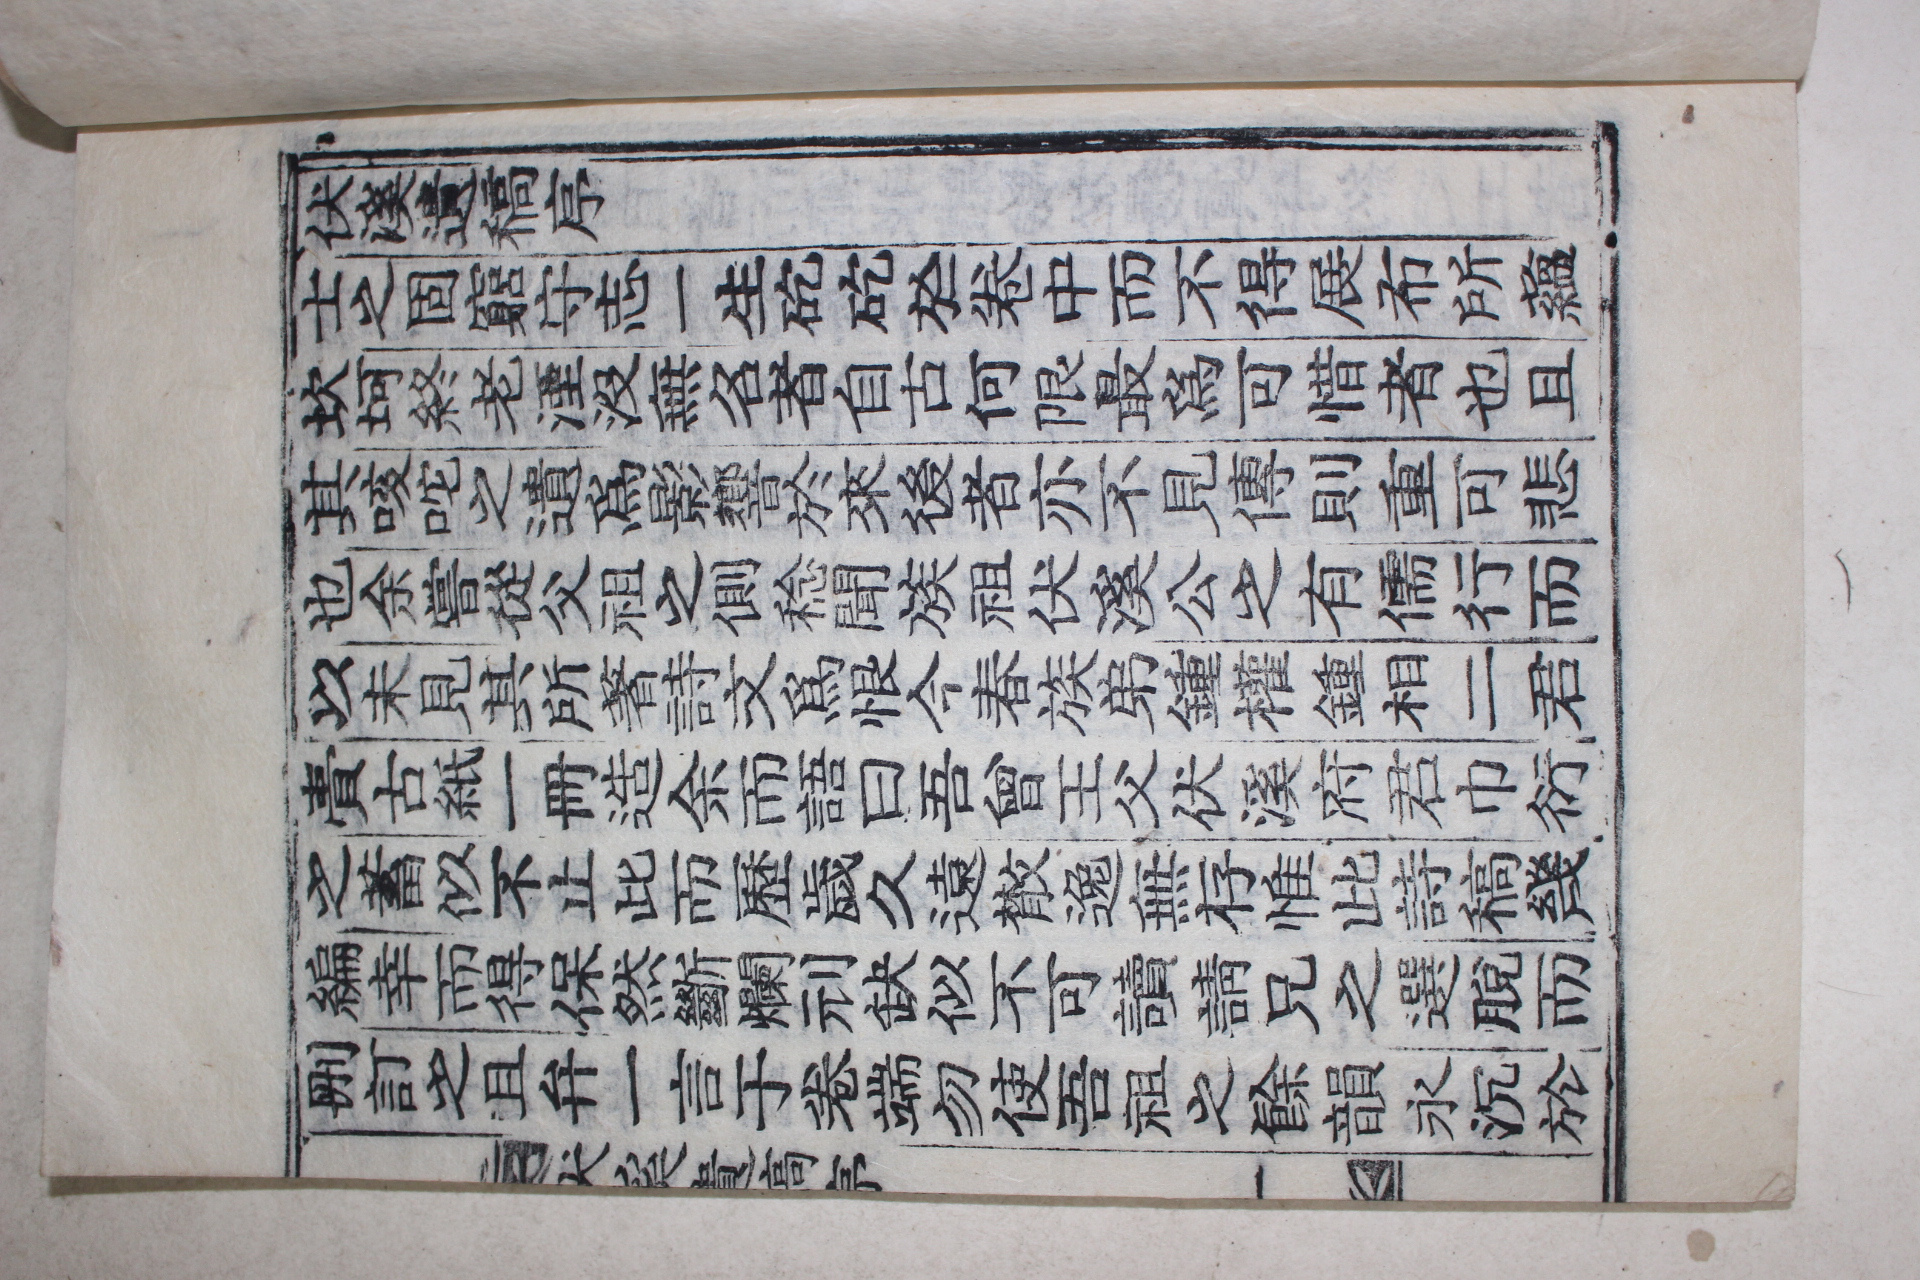 伏溪遺稿序
士之固窮守志一生矻矻於卷中而不得展布所蘊
坎坷終老湮沒無名者自古何限最爲可惜者也且
其咳咜之遺爲影響於來後者亦不見傳則重可悲
也余嘗從父祖之側稔聞族祖伏溪公之有儒行而
以未見其所著詩文爲恨今春族弟鍾權鍾相二君
賫古紙一冊造余而語曰吾曾王父伏溪府君巾衍
之蓄似不止此而歷歲久遠散逸無存惟此詩稿幾
編幸而得保然斷爛刓缺似不可讀請兄之選脫而
刪訂之且弁一言于卷端勿使吾祖之餘韻永沉於
伏溪遺稿序
一